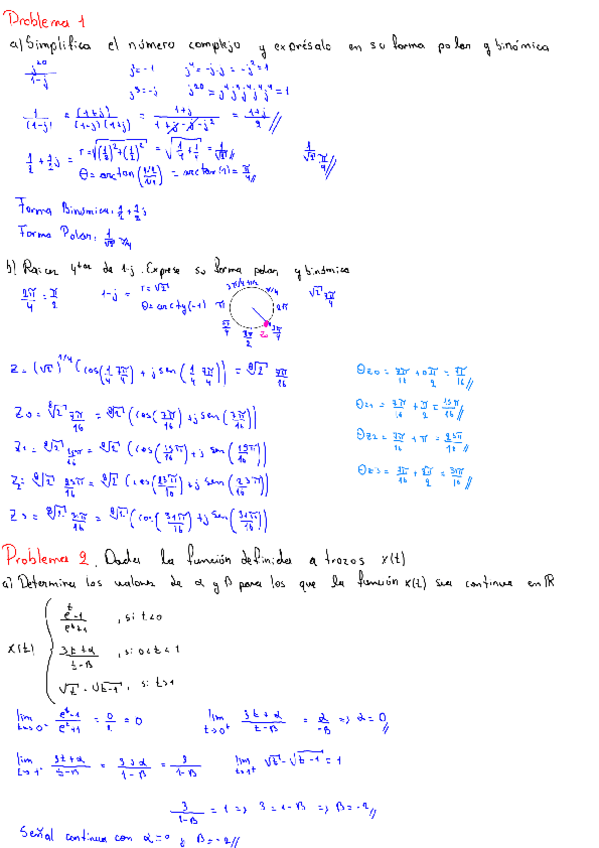 Problema 1
a) Simplifica el número complejo y exprésalo en su forma polar y binómica
j^20/(1-j)   j²=-1   j⁴=-j·j=-j²=1
j³=-j   j^20=j⁴j⁴j⁴j⁴j⁴=1
1/(1-j) = (1+j)/((1-j)(1+j)) = (1+j)/(1+j-j-j²) = (1+j)/2
1/2+1/2j = r=√((1/2)²+(1/2)²) = √(1/4+1/4) = 1/√2   1/√2 π/4
θ=arctan((1/2)/(1/2)) = arctan(1)=π/4
Forma Binómica: 1/2+1/2j
Forma Polar: 1/√2 π/4
b) Raíces 4^tas de 1-j. Exprese su forma polar y binómica
2π/4=π/2   1-j = r=√2   √2 7π/4
θ=arctg(-1)
Z=(√2)^1/4 (cos(1/4 7π/4) + j sen(1/4 7π/4)) = ⁸√2 7π/16
θz0 = 7π/16 + 0π/2 = 7π/16
Z0=⁸√2 7π/16 = ⁸√2 (cos(7π/16)+j sen(7π/16))
θz1 = 7π/16 + π/2 = 15π/16
Z1=⁸√2 15π/16 = ⁸√2 (cos(15π/16)+j sen(15π/16))
θz2 = 7π/16 + π = 23π/16
Z2=⁸√2 23π/16 = ⁸√2 (cos(23π/16)+j sen(23π/16))
θz3 = 7π/16 + 3π/2 = 31π/16
Z3=⁸√2 31π/16 = ⁸√2 (cos(31π/16)+j sen(31π/16))
Problema 2. Dada la función definida a trozos x(t)
a) Determina los valores de α y β para los que la función x(t) sea continua en ℝ
(e^t-1)/(e^t+1) , si t<0
x(t) { (3t+α)/(t-β) , si 0<t<1
√t - √(t-1) , si t>1
lim t→0⁻ (e^t-1)/(e^t+1) = 0/2 = 0   lim t→0⁺ (3t+α)/(t-β) = α/-β => α=0
lim t→1⁻ (3t+α)/(t-β) = (3+α)/(1-β) = 3/(1-β)   lim t→1⁺ √t-√(t-1) = 1
3/(1-β) = 1 => 3=1-β => β=-2
Señal continua con α=0 y β=-2